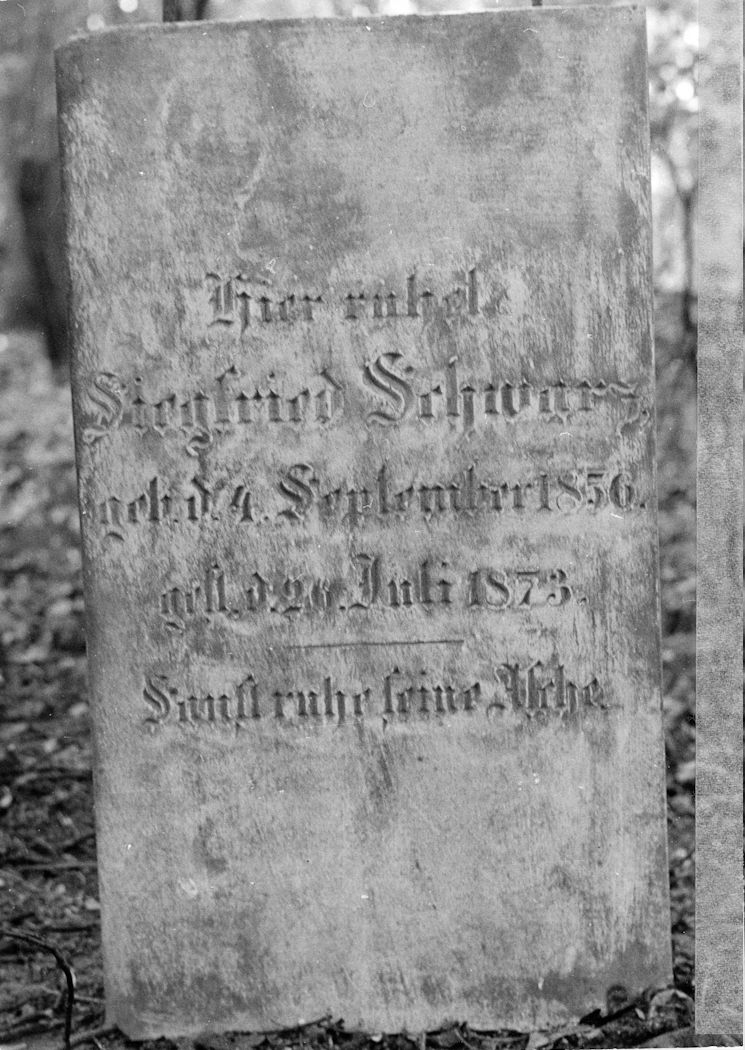 Hier ruhet
Siegfried Schwarz,
geb. d. 4. September 1856.
gest. d. 26. Juli 1873.
Sanft ruhe seine Asche.